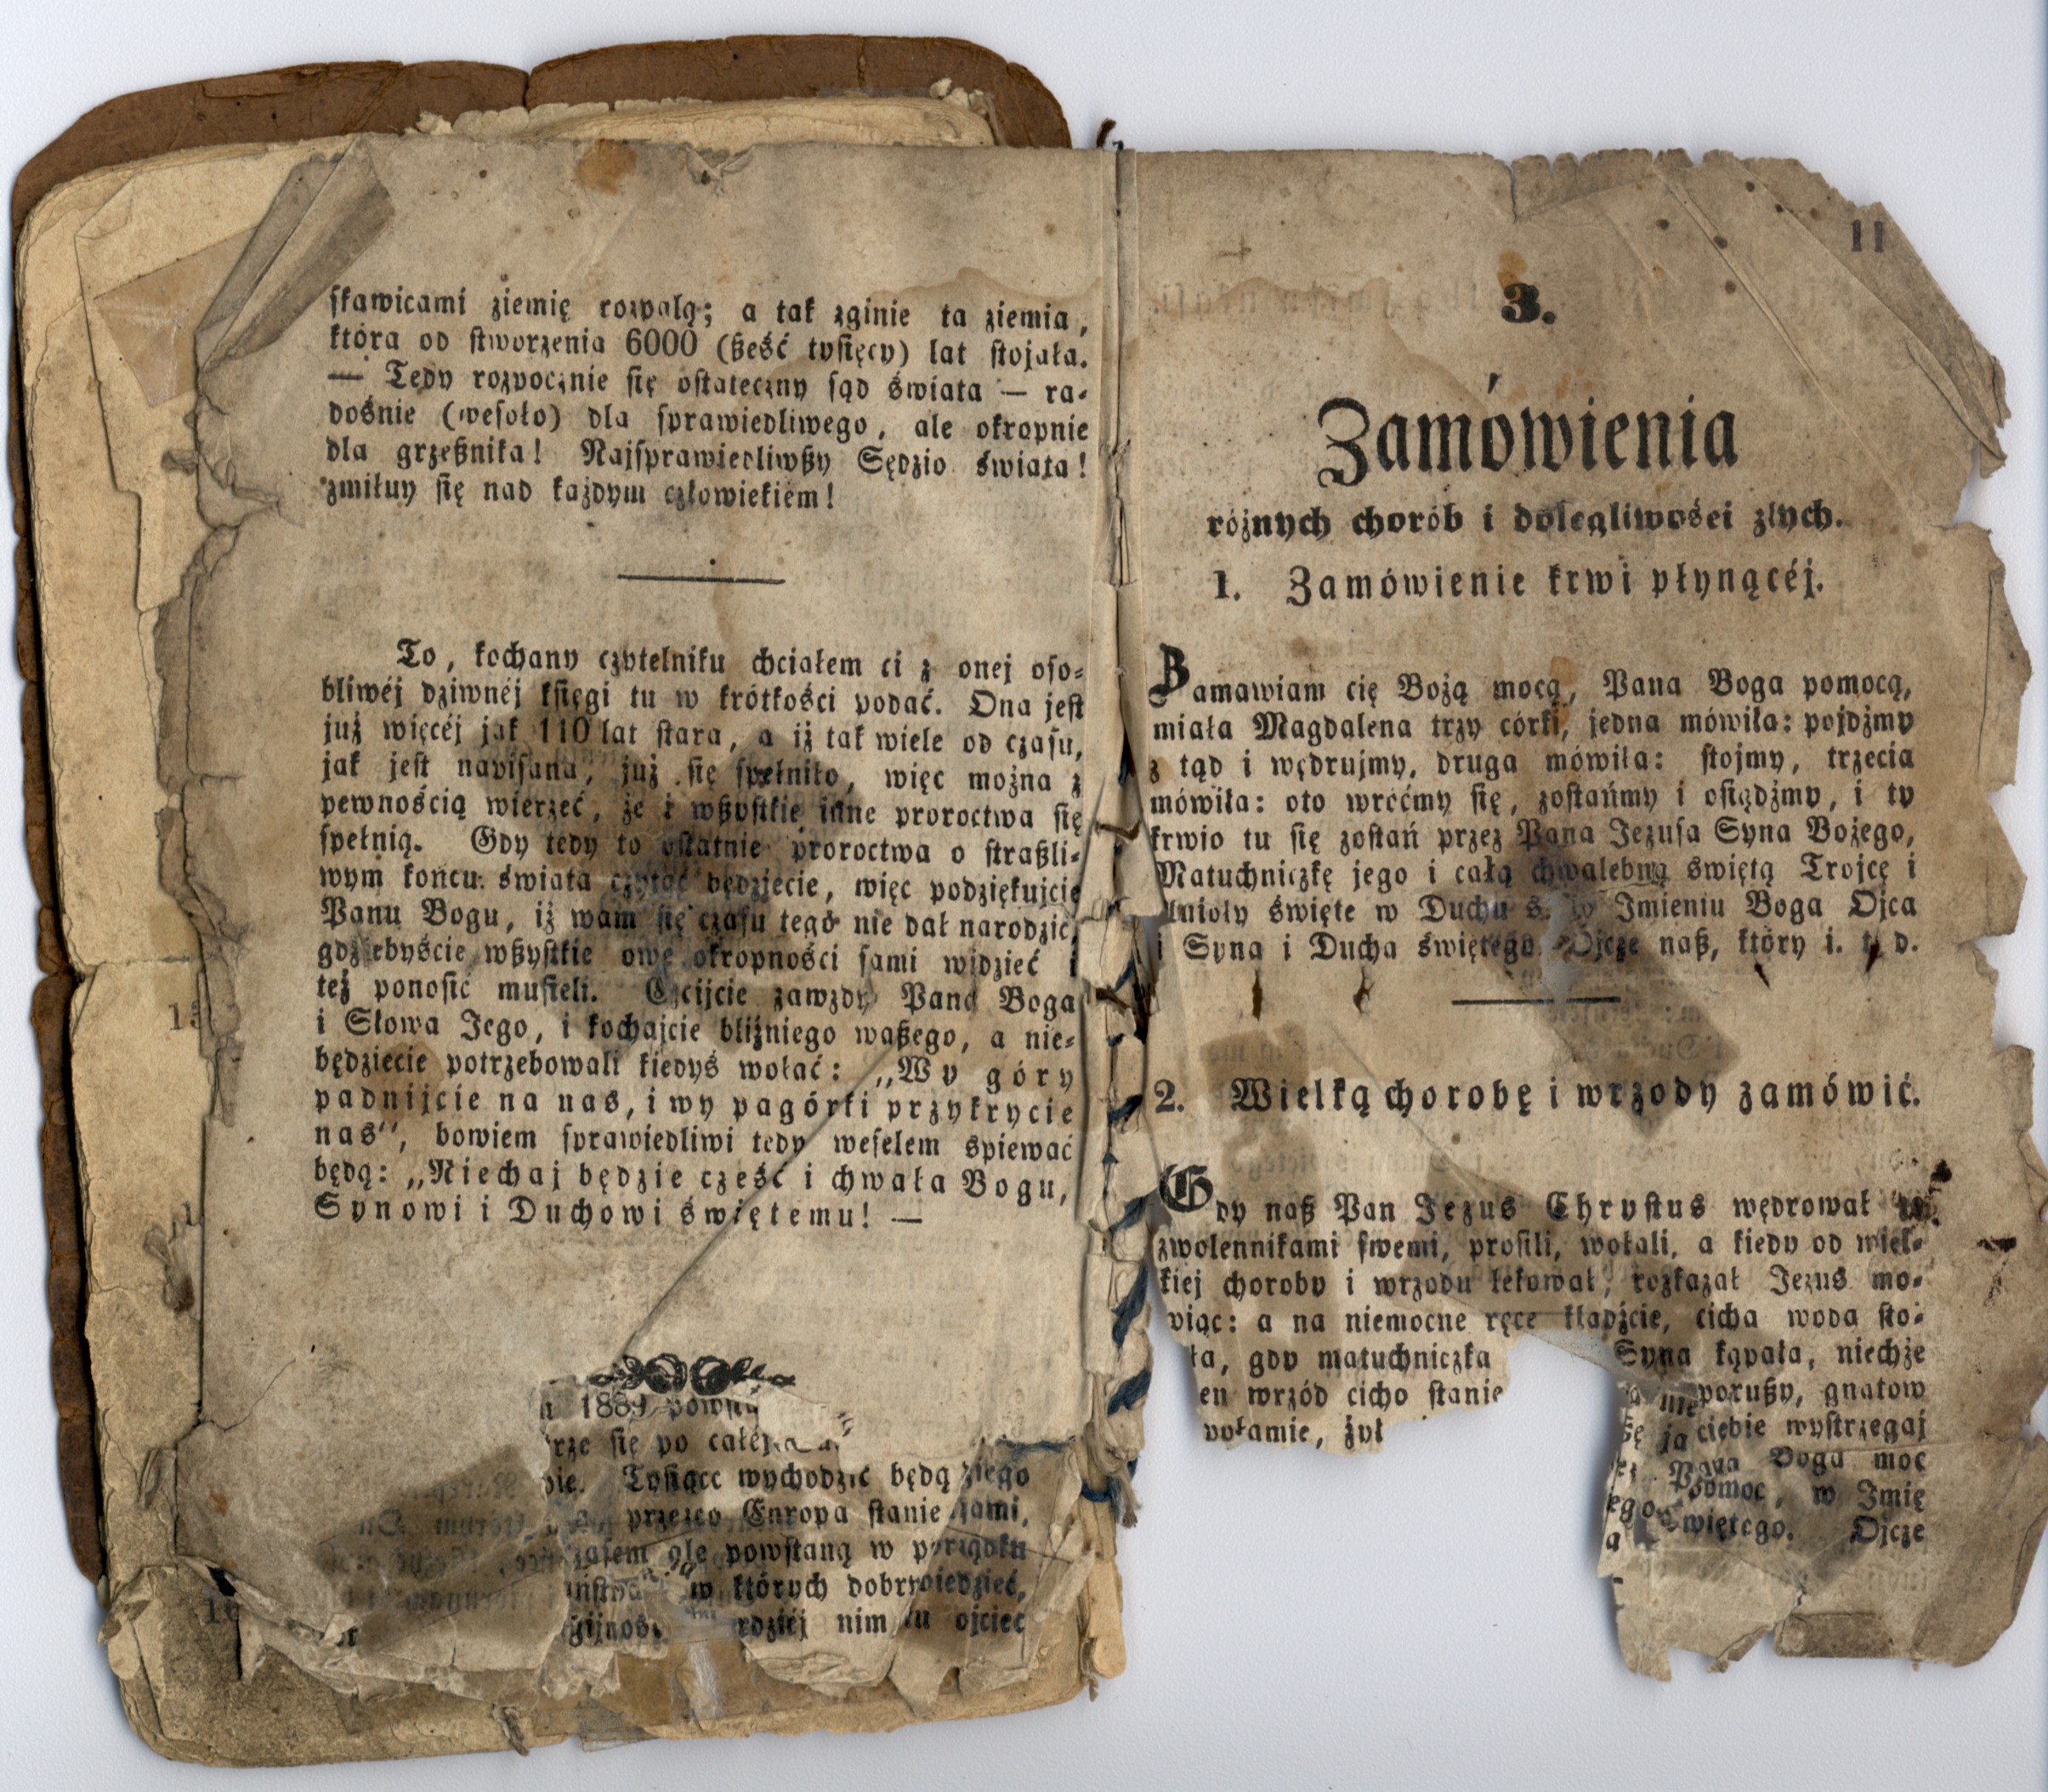 skawicami ziemię rozpalą; a tak zginie ta ziemia,
która od stworzenia 6000 (ßeść tysięcy) lat stojała.
— Tedy rozpocznie się ostateczny sąd świata — ra-
dośnie (wesoło) dla sprawiedliwego, ale okropnie
dla grzeßnika! Najsprawiedliwßy Sędzio świata!
zmiłuy się nad każdym człowiekiem!
To, kochany czytelniku chciałem ci z onej oso-
bliwéj dziwnéj księgi tu w krótkości podać. Ona jest
już więcéj jak 110 lat stara, a iż tak wiele od czasu,
jak jest napisana, już się spełniło, więc można z
pewnością wierzeć, że i wßystkie inne proroctwa się
spełnią. Gdy tedy to ostatnie proroctwa o straßli-
wym końcu świata czytać będziecie, więc podziękujcie
Panu Bogu, iż wam się czasu tego nie dał narodzić,
gdziebyście wßystkie owe okropności sami widzieć i
też ponosić musieli. Czcijcie zawzdy Pana Boga
i Słowa Jego, i kochajcie bliźniego waßego, a nie-
będziecie potrzebowali kiedyś wołać: „Wy góry
padnijcie na nas, i wy pagórki przykrycie
nas“, bowiem sprawiedliwi tedy weselem spiewać
będą: „Niechaj będzie cześć i chwała Bogu,
Synowi i Duchowi świętemu! —
1889
się po całéj
Tysiące wychodzić będą
przezco Europa stanie
ole powstaną w
w których
nim ojciec
11
3.
Zamówienia
różnych chorób i dolegliwośei złych.
1. Zamówienie krwi płynącéj.
Zamawiam cię Bożą mocą, Pana Boga pomocą,
miała Magdalena trzy córki, jedna mówiła: pojdźmy
z tąd i wędrujmy, druga mówiła: stojmy, trzecia
mówiła: oto wróćmy się, zostańmy i osiądźmy, i ty
krwio tu się zostań przez Pana Jezusa Syna Bożego,
Matuchniczkę jego i całą chwalebną swiętą Trojcę i
Anioły święte w Duchu s. w Imieniu Boga Ojca
i Syna i Ducha świętego. Ojcze naß, który i. t. d.
2. Wielką chorobę i wrzody zamówić.
Gdy naß Pan Jezus Chrystus wędrował
zwolennikami swemi, prosili, wołali, a kiedy od wiel-
kiej choroby i wrzodu lekował, rozkazał Jezus mo-
wiąc: a na niemocne ręce kładźcie, cicha woda sto-
ła, gdy matuchniczka Syna kąpała, niechże
en wrzód cicho stanie porußy, gnatow
żył ciebie wystrzegaj
Pana Boga moc
pomoc, w Imię
więtego. Ojcze